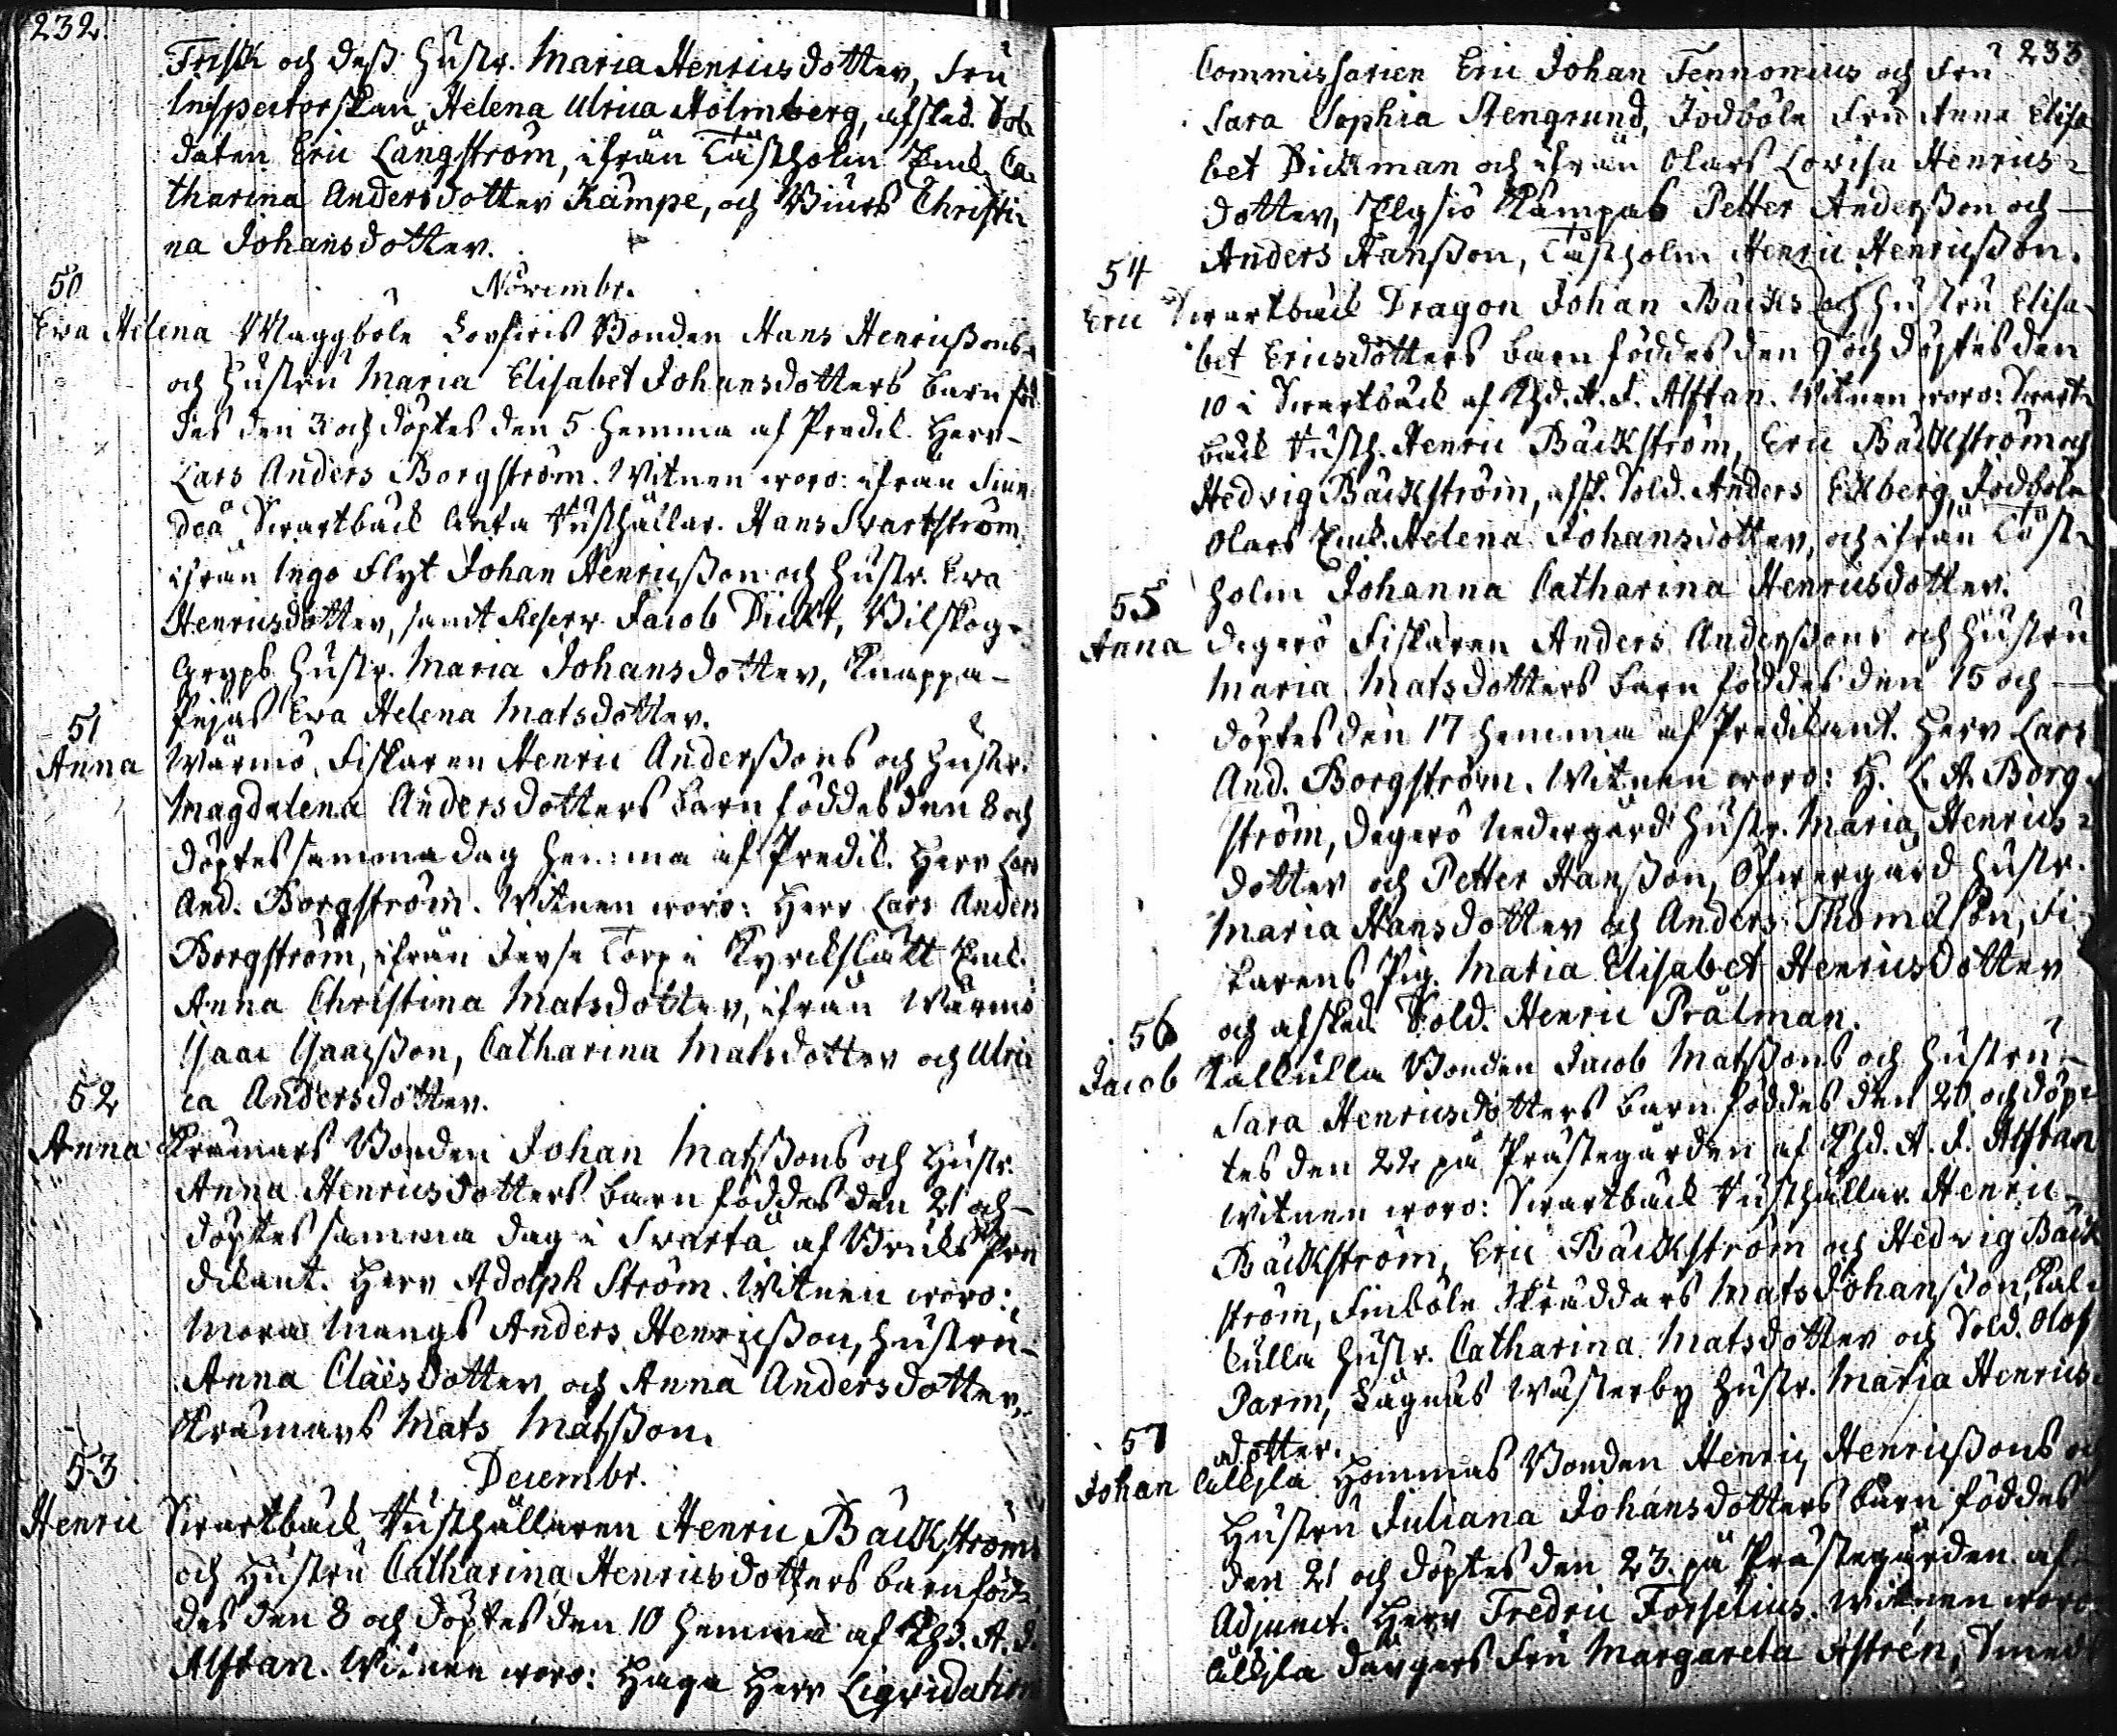 232.
Frisk och dess Hustr. Maria Henricsdotter, Fru
Inspectorskan Helena Ulrica Holmberg, afsked. Sol-
daten Eric Långström, ifrån Täskholm Enk. Ca-
tharina Andersdotter Kämpe, och Biurs Christi-
na Johansdotter.
Novembr.
50
Ewa Helena Maggböle Bonden Hans Henricssons
och Hustru Maria Elisabet Johansdotters barn föd-
des den 3 och döptes den 5 hemma af Predik. Herr
Lars Anders Borgström. Witnen woro: ifrån
Swartbäck Rusthållar. Hans Svartström,
ifrån Ingo Flyt Johan Henricsson och Hustr. Ewa
Henricsdotter, samt Reserv. Jacob Dickt, Bilskog
Gryps Hustr. Maria Johansdotter, Knappa-
Pigas Ewa Helena Matsdotter.
51
Anna Wärmö, Fiskaren Henric Anderssons och Hustr.
Magdalena Andersdotters barn föddes den 8 och
döptes samma dag hemma af Predik. Herr Lars
And. Borgström. Witnen woro: Herr Lars Anders
Borgström, ifrån Torp i Kyrckslätt Enk.
Anna Christina Matsdotter, ifrån Wärmö
Isaac Isaacsson, Catharina Matsdotter och Ulri-
ca Andersdotter.
52
Anna Krämars Bonden Johan Matssons och Hustr.
Anna Henricsdotters barn föddes den 21 och
döptes samma dag i Svartå af Bruks Pre-
dikant. Herr Adolph Ström. Witnen woro:
Mangs Anders Henricsson, Hustru
Anna Claësdotter och Anna Andersdotter,
Krämars Mats Matsson.
Decembr.
53
Henric Swartbäck Rusthållaren Henric Bäckströms
och Hustru Catharina Henricsdotters barn föd-
des den 8 och döptes den 10 hemma af Khd. A. J.
Alftan. Witnen woro: Haga Herr Liqvidations
233.
Commissarien Eric Johan Fennonius och Fru
Sara Sophia Stengrund, Jodböle Fru Anna Elisa-
bet Dickman och ifrån Olars Lovisa Henrics-
dotter, Elgsiö Kämpas Petter Andersson och
Anders Hansson, Täskholm Henric Henricsson.
54
Eric Swartbäck Dragon Johan Bäcks och Hustru Elisa-
bet Ericsdotters barn föddes den 9 och döptes den
10 i Swartbäck af Khd. A. J. Alftan. Witnen woro: Swart-
bäck Rusth. Henric Bäckström, Eric Bäckström och
Hedvig Bäckström, afsk. Sold. Anders Ekberg, Jodböle
Olars Enk. Helena Johansdotter, och ifrån Täsk-
holm Johanna Catharina Henricsdotter.
55
Anna Degerö Fiskaren Anders Anderssons och Hustru
Maria Matsdotters barn föddes den 15 och
döptes den 17 hemma af Predikant. Herr Lars
And. Borgström. Witnen woro: H. L. A. Borg-
ström, Degerö Nedergård Hustr. Maria Henrics-
dotter och Petter Hansson, Öfwergård Hustr.
Maria Hansdotter och Anders Thomasson, Fi-
skarens Pig. Maria Elisabet Henricsdotter
och afsked. Sold. Henric Prålman.
56
Jacob Kallkulla Bonden Jacob Matssons och Hustru
Sara Henricsdotters barn föddes den 20 och döp-
tes den 22 på Prästegården af Khd. A. J. Alftan
Witnen woro: Swartbäck Rusthållar. Henric
Bäckström, Eric Bäckström och Hedvig Bäck-
ström, Finböle Skräddars Mats Johansson, Kal-
kulla Hustr. Catharina Matsdotter och Sold. Olof
Parm, Lägnäs Wästerby Hustr. Maria Henrics-
dotter.
57
Johan Hommas Bonden Henric Henricssons och
Hustru Juliana Johansdotters barn föddes
den 21 och döptes den 23 på Prästegården af
Adjunct. Herr Fredric Forselius. Witnen woro
Fru Margareta Astrén, Smeds